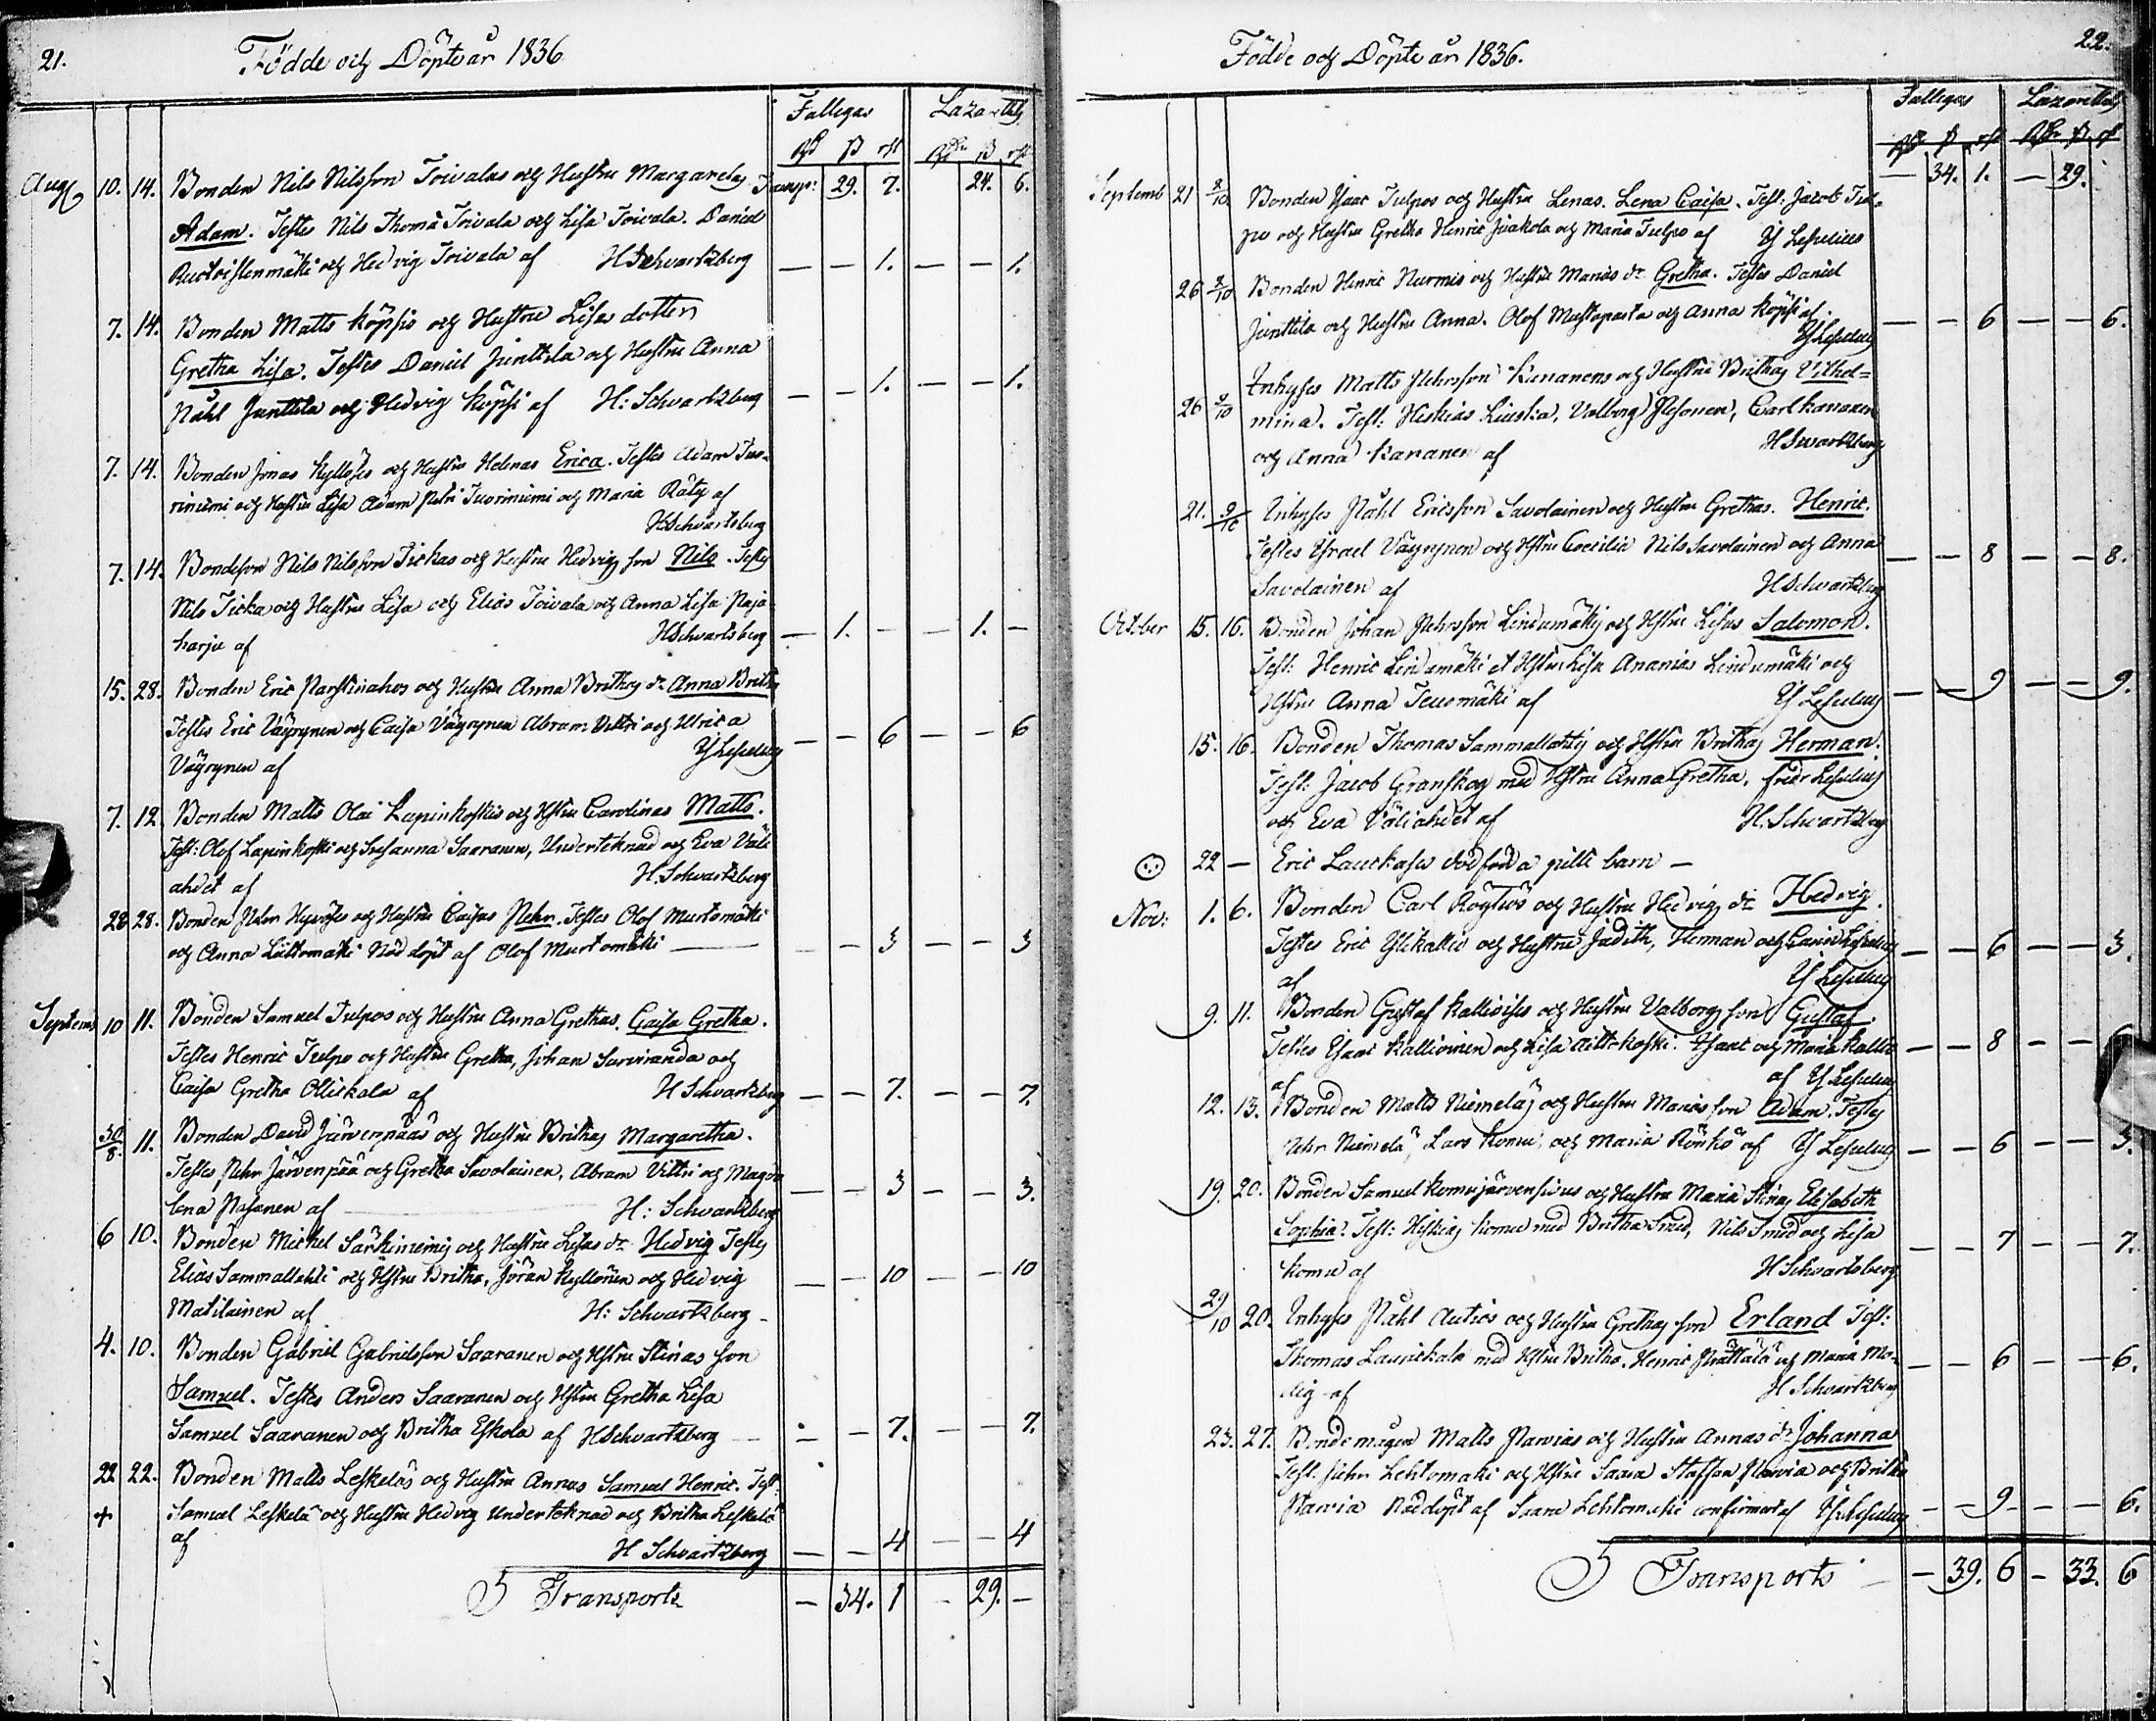 21.
Födde och Döpte år 1836
Fattigas Lazarettes
Rd ß rst Rdr ß rst
Aug 10. 14. Bonden Nils Nilsson Toivalas och Hustru Margaretas Transp: 29. 7. 24. 6.
Adam. Testes Nils Thomæ Toivala och Lisa Toivala. Daniel
och Hedvig Toivala af HSchvartzberg — — 1. — — 1.
7. 14. Bonden Matts Köpsis och Hustru Lisas dotter
Gretha Lisa. Testes Daniel Junttila och Hustru Anna
Påhl Junttila och Hedvig Köpsi af H: Schvartzberg — — 1. — — 1.
7. 14. Bonden Jonas Kyllöses och Hustru Helenas Erica. Testes Adam Tuo-
riniemi och Hustru Lisa Adam Petri Tuoriniemi och Maria Räty af
HSchvartsberg
7. 14. Bondeson Nils Nilsson Tickas och Hustru Hedvigs son Nils. Testes
Nils Ticka och Hustru Lisa och Elias Toivala och Anna Lisa Paja
harju af HSchvartsberg — 1. — — 1. —
15. 28. Bonden Eric Parstinahos och Hustru Anna Brithas dr Anna Britha
Testes Eric Väyrynen och Caisa Väyrynen Abram Vittri och Ulrica
Väyrynen af — — 6 — — 6
7. 12. Bonden Matts Olai Lapinkoskis och Hstru Carolinas Matts.
Test: Olof Lapinkoski och Susanna Saaranen, Underteknad och Eva Väli
ahdet af H. Schvartzberg
28 28. Bonden Pehr Hyvöses och Hustru Caisas Pehr. Testes Olof Murtomäki
och Anna Lättomäki Nöd döpt af Olof Murtomäki — — 3 — — 3
Septemb 10 11. Bonden Samuel Tulpos och Hustru Anna Grethas. Caisa Gretha.
Testes Henric Tulpo och Hustru Gretha, Johan Sarviranda och
Caisa Gretha Ollickala af H Schvartzberg — — 7. — — 7.
30/8. 11. Bonden David Järvenpääs och Hustru Brithas Margaretha.
Testes Pehr Järvenpää och Gretha Savolainen, Abram Vittri och Magda
lena Pasanen af H: Schvartzberg — — 3 — — 3.
6 10. Bonden Mickel Särkiniemis och Hustru Lisas dr Hedvig Testes
Elias Sammallahti och Hstru Britha, Jöran Kyllönen och Hedvig
Matilainen af H: Schvartzberg — — 10 — — 10
4. 10. Bonden Gabriel Gabrielsson Saaranen och Hstru Stinas son
Samuel. Testes Anders Saaranen och Hstru Gretha Lisa
Samuel Saaranen och Britha Eskola af HSchvartzberg — — 7. — — 7.
22 22. Bonden Matts Leskeläs och Hustru Annas Samuel Henric. Test:
+ Samuel Leskelä och Hustru Hedvig Underteknad och Britha Leskelä
af H Schvartzberg — — 4 — — 4
Transports — 34. 1 — 29. —
22.
Födde och Döpte år 1836.
Fattigas Lazarettes
— 34. 1. — 29.
Septemb 21 2/10 Bonden Isaac Tulpos och Hustru Lenas. Lena Caisa. Test: Jacob Tul-
po och Hustru Gretha Henric Juakola och Maria Tulpo af
26 2/10 Bonden Henric Nurmis och Hustru Marias dr Gretha. Testes Daniel
Junttila och Hustru Anna. Olof Mustaparta och Anna Köpsi af — — 6 — — 6.
26 2/10 Inhyses Matts Pehrsson Kananens och Hustru Brithas Vilhel=
mina. Test: Hiskias Liuska, Valborg Pesonen, Carl Kananen
och Anna Kananen af HSvartzberg
21. 9/10 Inhyses Påhl Ericsson Savolainen och Hustru Grethas. Henric.
Testes Israel Väyrynen och Hstru Coecilia Nils Savolainen och Anna — — 8 — — 8.
Savolainen af HSchvartzberg
October 15. 16. Bonden Johan Pehrsson Lindumäkis och Hstru Lisas Salomon.
Test: Henric Lindumäki et Hstru Lisa Ananias Lindumäki och
Hstru Anna Teuomäki af — — 9 — — 9.
15. 16. Bonden Thomas Sammallahtis och Hstru Brithas Herman.
Test: Jacob Granskog med Hstru Anna Gretha,
och Eva Väliahdet af H. Schvartzberg
22 — Eric Lauckases dödfödda barn —
Nov: 1. 6. Bonden Carl Röytiös och Hustru Hedvigs dr Hedvig.
Testes Eric Ylikallio och Hustru Judith, Herman och — — 6 — — 3.
af
9. 11. Bonden Gustaf Kallioises och Hustru Valborgs son Gustaf.
Testes Isaac Kallioinen och Lisa Aittokoski. Isaac och Maria Kallio — — 8 — —
af
12. 13. Bonden Matts Niemeläs och Hustru Marias son Adam. Testes
Pehr Niemelä, Lars Komu och Maria Rönkö af — — 6 — — 3.
19. 20. Bonden Samuel Komujärvensivus och Hustru Maria Stinas Elisabeth
Sophia. Test: Hiskias Komu med Britha Smed, Nils Smed och Lisa
Komu af H Schvartsberg — — 7 — — 7.
29/10 20. Inhyses Påhl Autios och Hustru Grethas son Erland Test:
Thomas Laurickala med Hstru Britha. Henric Prättälä och Maria Mo-
dig af H Schvartzberg — — 6 — — 6.
23. 27. Bondemågen Matts Parvias och Hustru Annas dr Johanna
Test: Pehr Lehtomäki och Hstru Saara Staffan Parvia och Britha
Parvia Nöddöpt af Saara Lehtomäki confirmerat af — — 9 — — 6.
Transports — 39. 6 — 33. 6